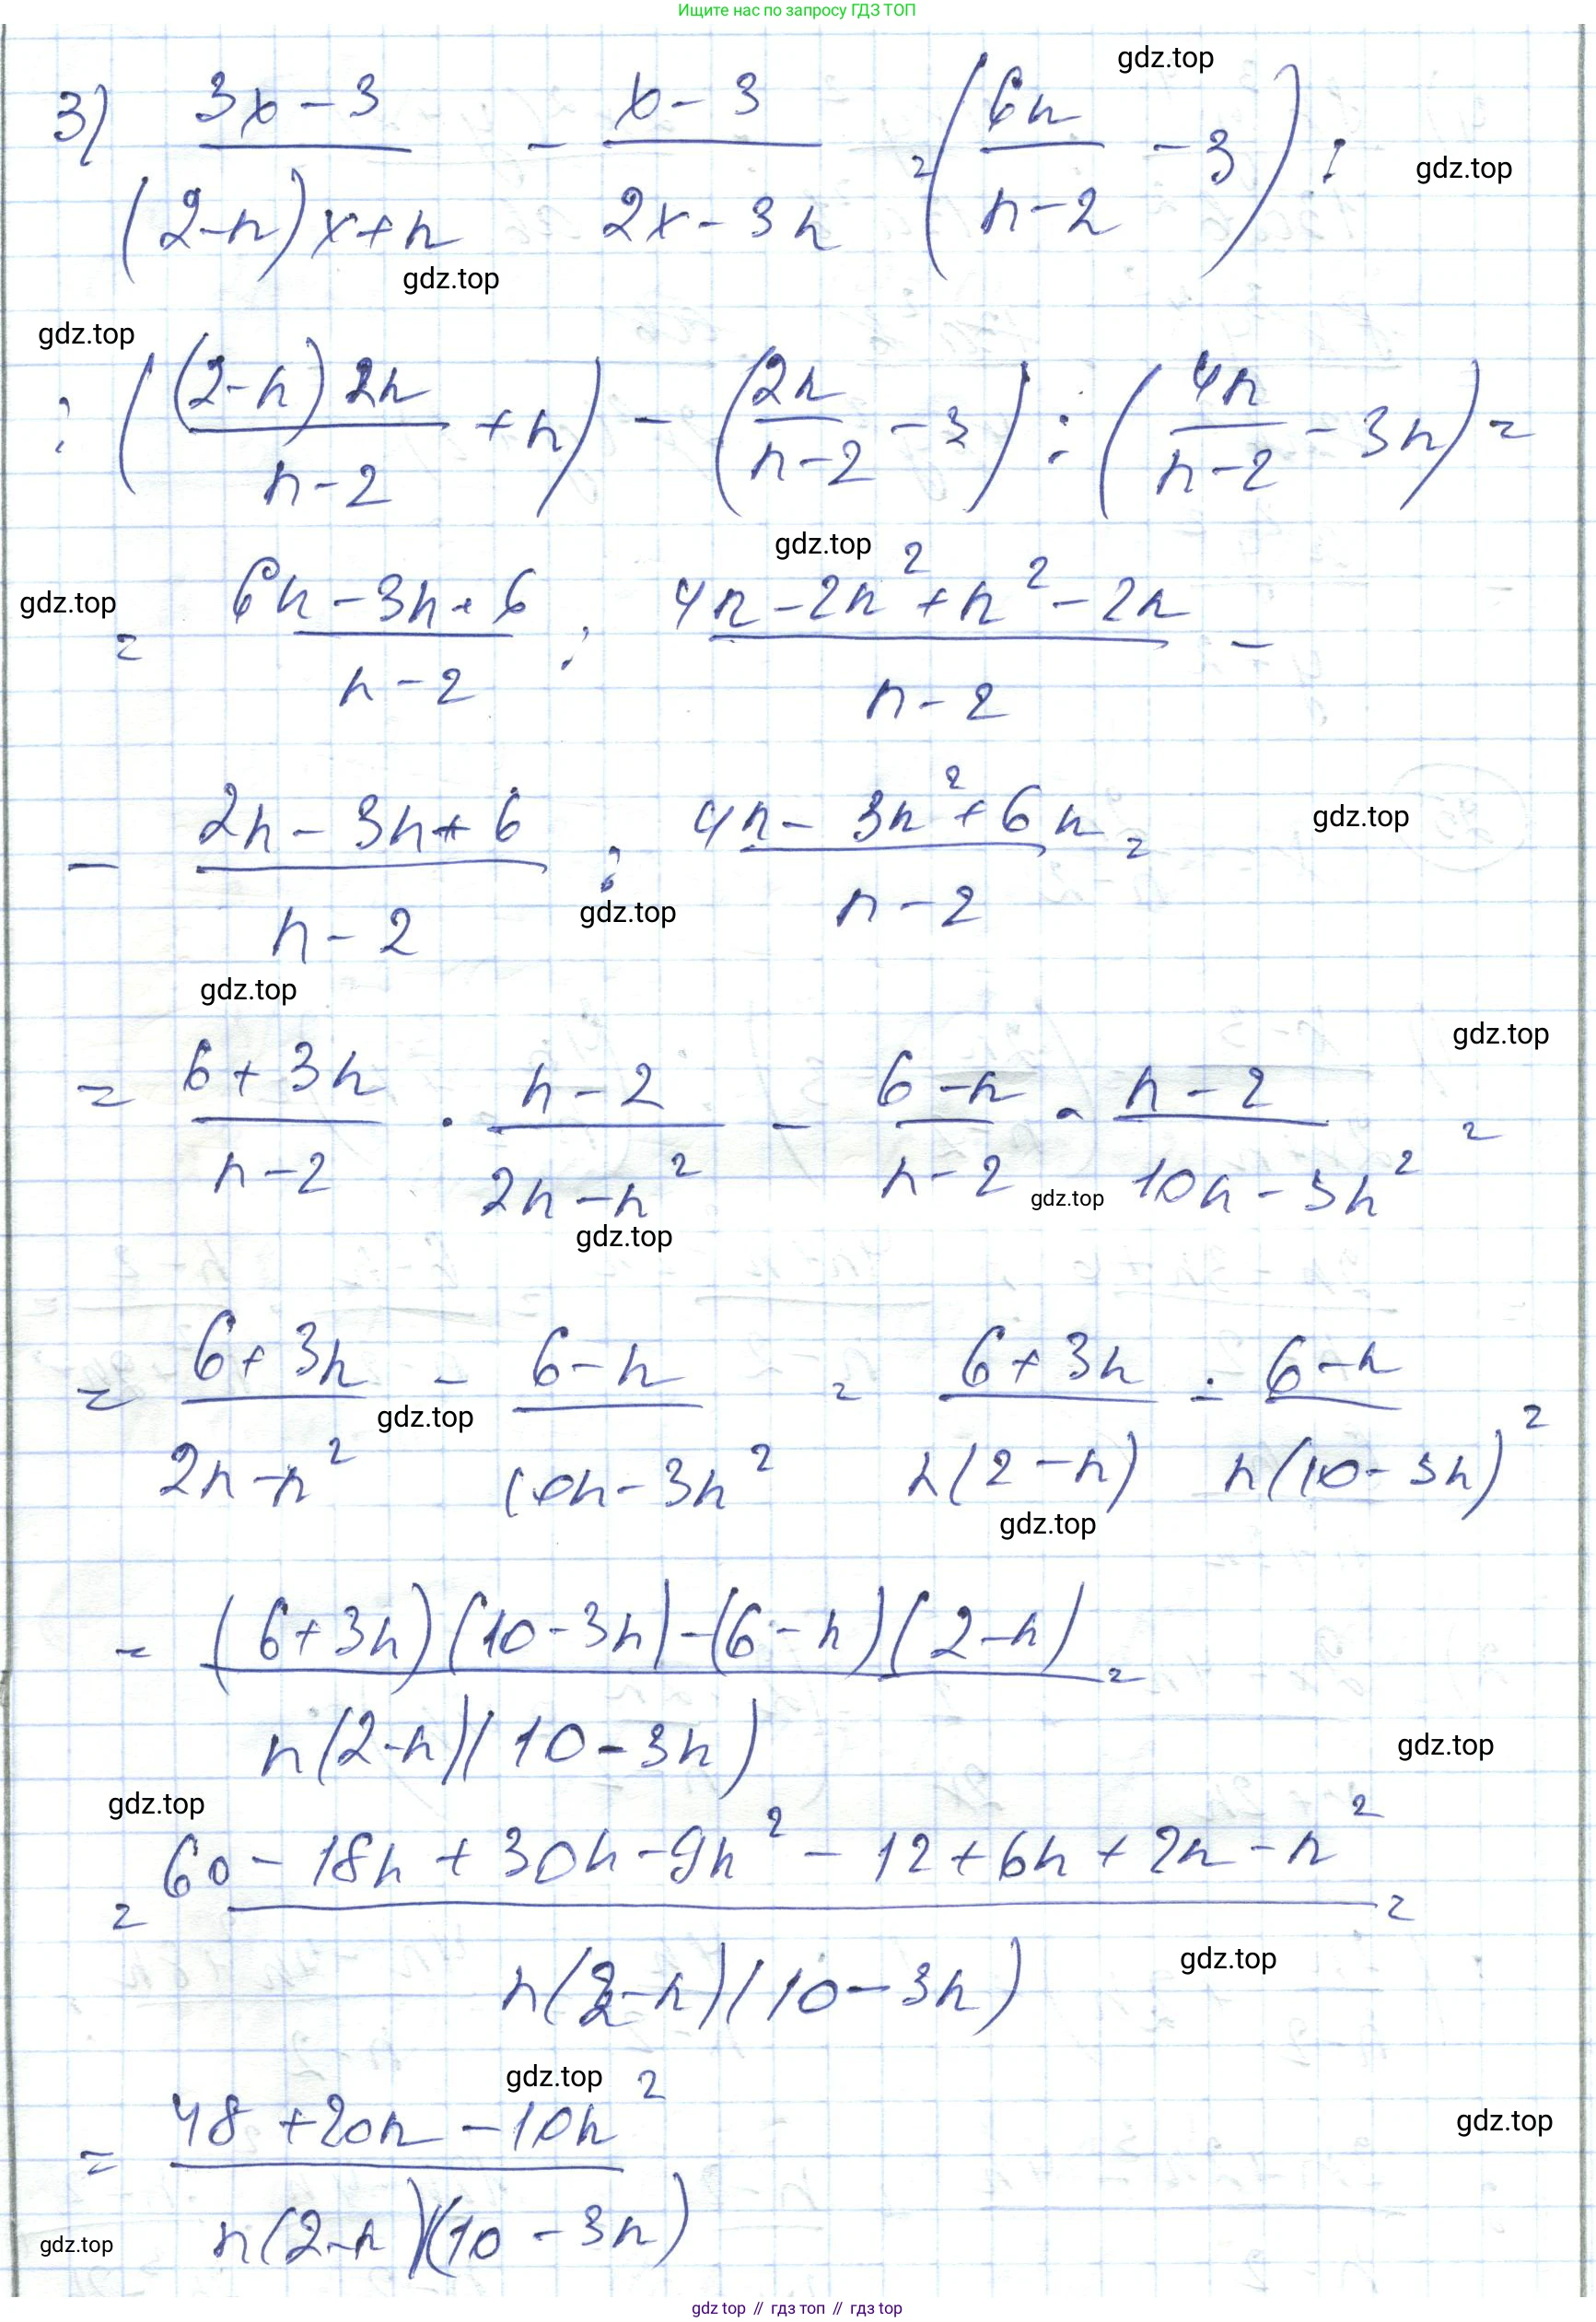 Ищите нас по запросу ГДЗ ТОП
3) (3x-3)/((2-n)x+n) - (x-3)/(2x-3n) = (6n/(n-2) - 3) :
gdz.top
gdz.top
gdz.top
gdz.top
: ((2-n)2n/(n-2) + n) - (2n/(n-2) - 3) : (4n/(n-2) - 3n) =
gdz.top
gdz.top
= (6n-3n+6)/(n-2) : (4n-2n²+n²-2n)/(n-2) -
- (2n-3n+6)/(n-2) : (4n-3n²+6n)/(n-2) =
gdz.top
gdz.top
gdz.top
gdz.top
= (6+3n)/(n-2) · (n-2)/(2n-n²) - (6-n)/(n-2) · (n-2)/(10n-3n²) =
gdz.top
gdz.top
= (6+3n)/(2n-n²) - (6-n)/(10n-3n²) = (6+3n)/(n(2-n)) - (6-n)/(n(10-3n)) =
gdz.top
gdz.top
= ((6+3n)(10-3n)-(6-n)(2-n))/(n(2-n)(10-3n)) =
gdz.top
gdz.top
= (60-18n+30n-9n²-12+6n+2n-n²)/(n(2-n)(10-3n)) =
gdz.top
gdz.top
= (48+20n-10n²)/(n(2-n)(10-3n))
gdz.top
gdz.top
gdz top // гдз топ // гдз top